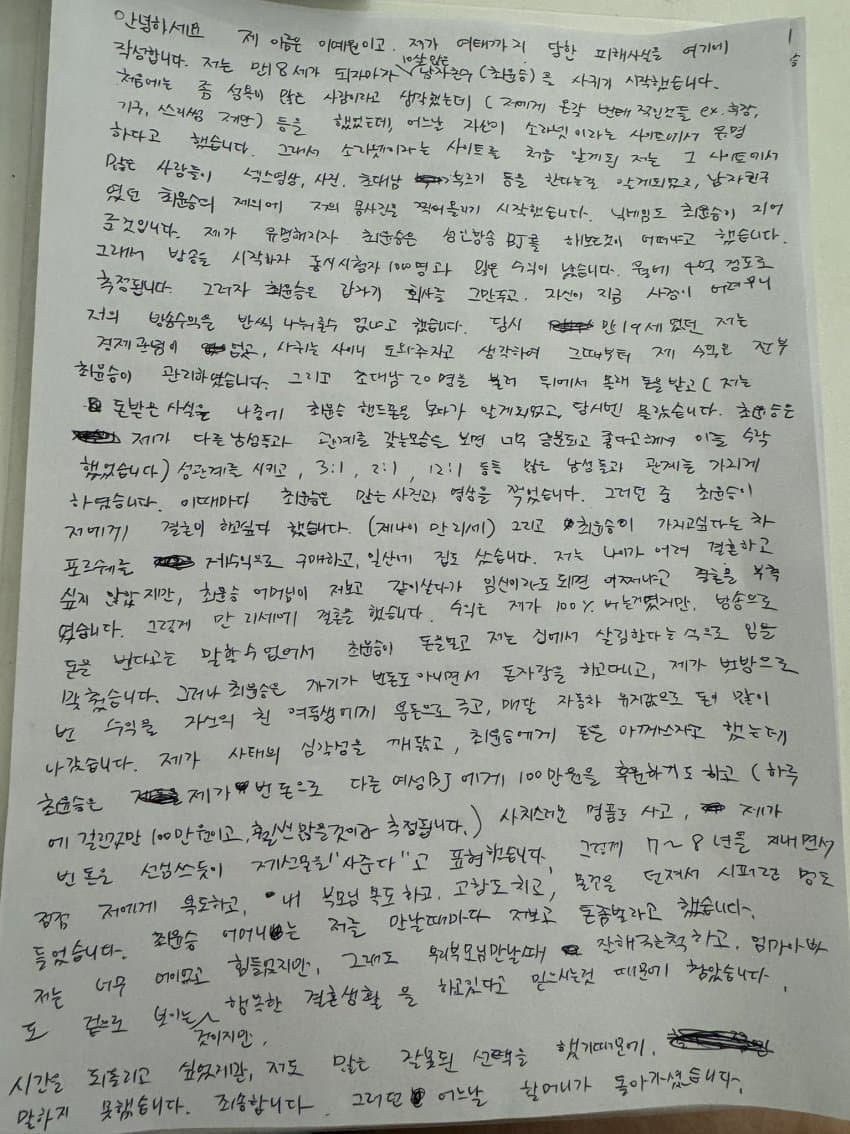 1
안녕하세요 제 이름은 이예원이고. 저가 여태까지 당한 피해사실을 여기에
작성합니다. 저는 만18세가 되자마자 10살많은 남자친구 (최윤승)를 사귀기 시작했습니다.
처음에는 좀 성욕이 많은 사람이라고 생각했는데 (저에게 온갖 변태적인것들 ex.
기구, 쓰리썸 제안) 등을 했었는데, 어느날 자신이 소라넷이라는 사이트에서 유명
하다고 했습니다. 그래서 소라넷이라는 사이트를 처음 알게된 저는 그 사이트에서
많은 사람들이 섹스영상, 사진, 초대남 부르기 등을 한다는걸 알게되었고, 남자친구
였던 최윤승의 제의에 저의 몸사진을 찍어올리기 시작했습니다. 닉네임도 최윤승이 지어
준것입니다. 제가 유명해지자 최윤승은 성인방송 BJ를 해보는것이 어떠냐고 했습니다.
그래서 방송을 시작하자 동시시청자 1000명과 많은 수익이 났습니다. 월에 4억 정도로
측정됩니다. 그러자 최윤승은 갑자기 회사를 그만두고, 자신이 지금 사정이 어려우니
저의 방송수익을 반씩 나눠줄수 없냐고 했습니다. 당시 만19세 였던 저는
경제관념이 없고, 사귀는 사이니 도와주자고 생각하여 그때부터 제 수익은 전부
최윤승이 관리하였습니다. 그리고 초대남 20명을 불러 뒤에서 몰래 돈을 받고 (저는
돈받은 사실을 나중에 최윤승 핸드폰을 보다가 알게되었고, 당시엔 몰랐습니다. 최윤승은
제가 다른남성들과 관계를 갖는모습을 보면 너무 흥분되고 좋다고해서 이를 수락
했었습니다) 성관계를 시키고, 3:1, 2:1, 12:1 등등 많은 남성들과 관계를 가지게
하였습니다. 이때마다 최윤승은 많은 사진과 영상을 찍었습니다. 그러던 중 최윤승이
저에게 결혼이 하고싶다 했습니다. (제나이 만21세) 그리고 최윤승이 가지고싶다는 차
포르쉐를 제수익으로 구매하고, 일산에 집도 샀습니다. 저는 나이가 어려 결혼하고
싶지 않았지만, 최윤승 어머님이 저보고 같이살다가 임신이라도 되면 어쩌냐고 결혼을 부추
겼습니다. 그렇게 만 21세에 결혼을 했습니다. 수익은 제가 100% 버는거였지만, 방송으로
돈을 번다고는 말할수 없어서 최윤승이 돈을벌고 저는 집에서 살림한다는 식으로 입을
맞췄습니다. 그러나 최윤승은 자기가 번돈도 아니면서 돈자랑을 하고다니고, 제가 벗방으로
번 수익을 자신의 친 여동생에게 용돈으로 주고, 매달 자동차 유지값으로 돈이 많이
나갔습니다. 제가 사태의 심각성을 깨닫고, 최윤승에게 돈을 아껴쓰자고 했는데
최윤승은 제가 번돈으로 다른 여성BJ에게 100만원을 후원하기도 하고 (하루
에 걸린것만 100만원이고, 훨씬 많을것이라 측정됩니다.) 사치스러운 명품도 사고, 제가
번 돈을 선심쓰듯이 제선물을 "사준다"고 표현했습니다. 그렇게 7~8년을 지내면서
점점 저에게 욕도하고, 내 부모님 욕도 하고, 고함도 치고, 물건을 던져서 시퍼런 멍도
들었습니다. 최윤승 어머니는 저를 만날때마다 저보고 돈좀벌라고 했습니다.
저는 너무 어이없고 힘들었지만, 그래도 우리부모님만날때 잘해주는척하고, 엄마아빠
도 겉으로 보이는것이지만, 행복한 결혼생활을 하고있다고 믿으시는것 때문에 참았습니다.
시간을 되돌리고 싶었지만, 저도 많은 잘못된 선택을 했기때문에,
말하지 못했습니다. 죄송합니다. 그러던 어느날 할머니가 돌아가셨습니다.